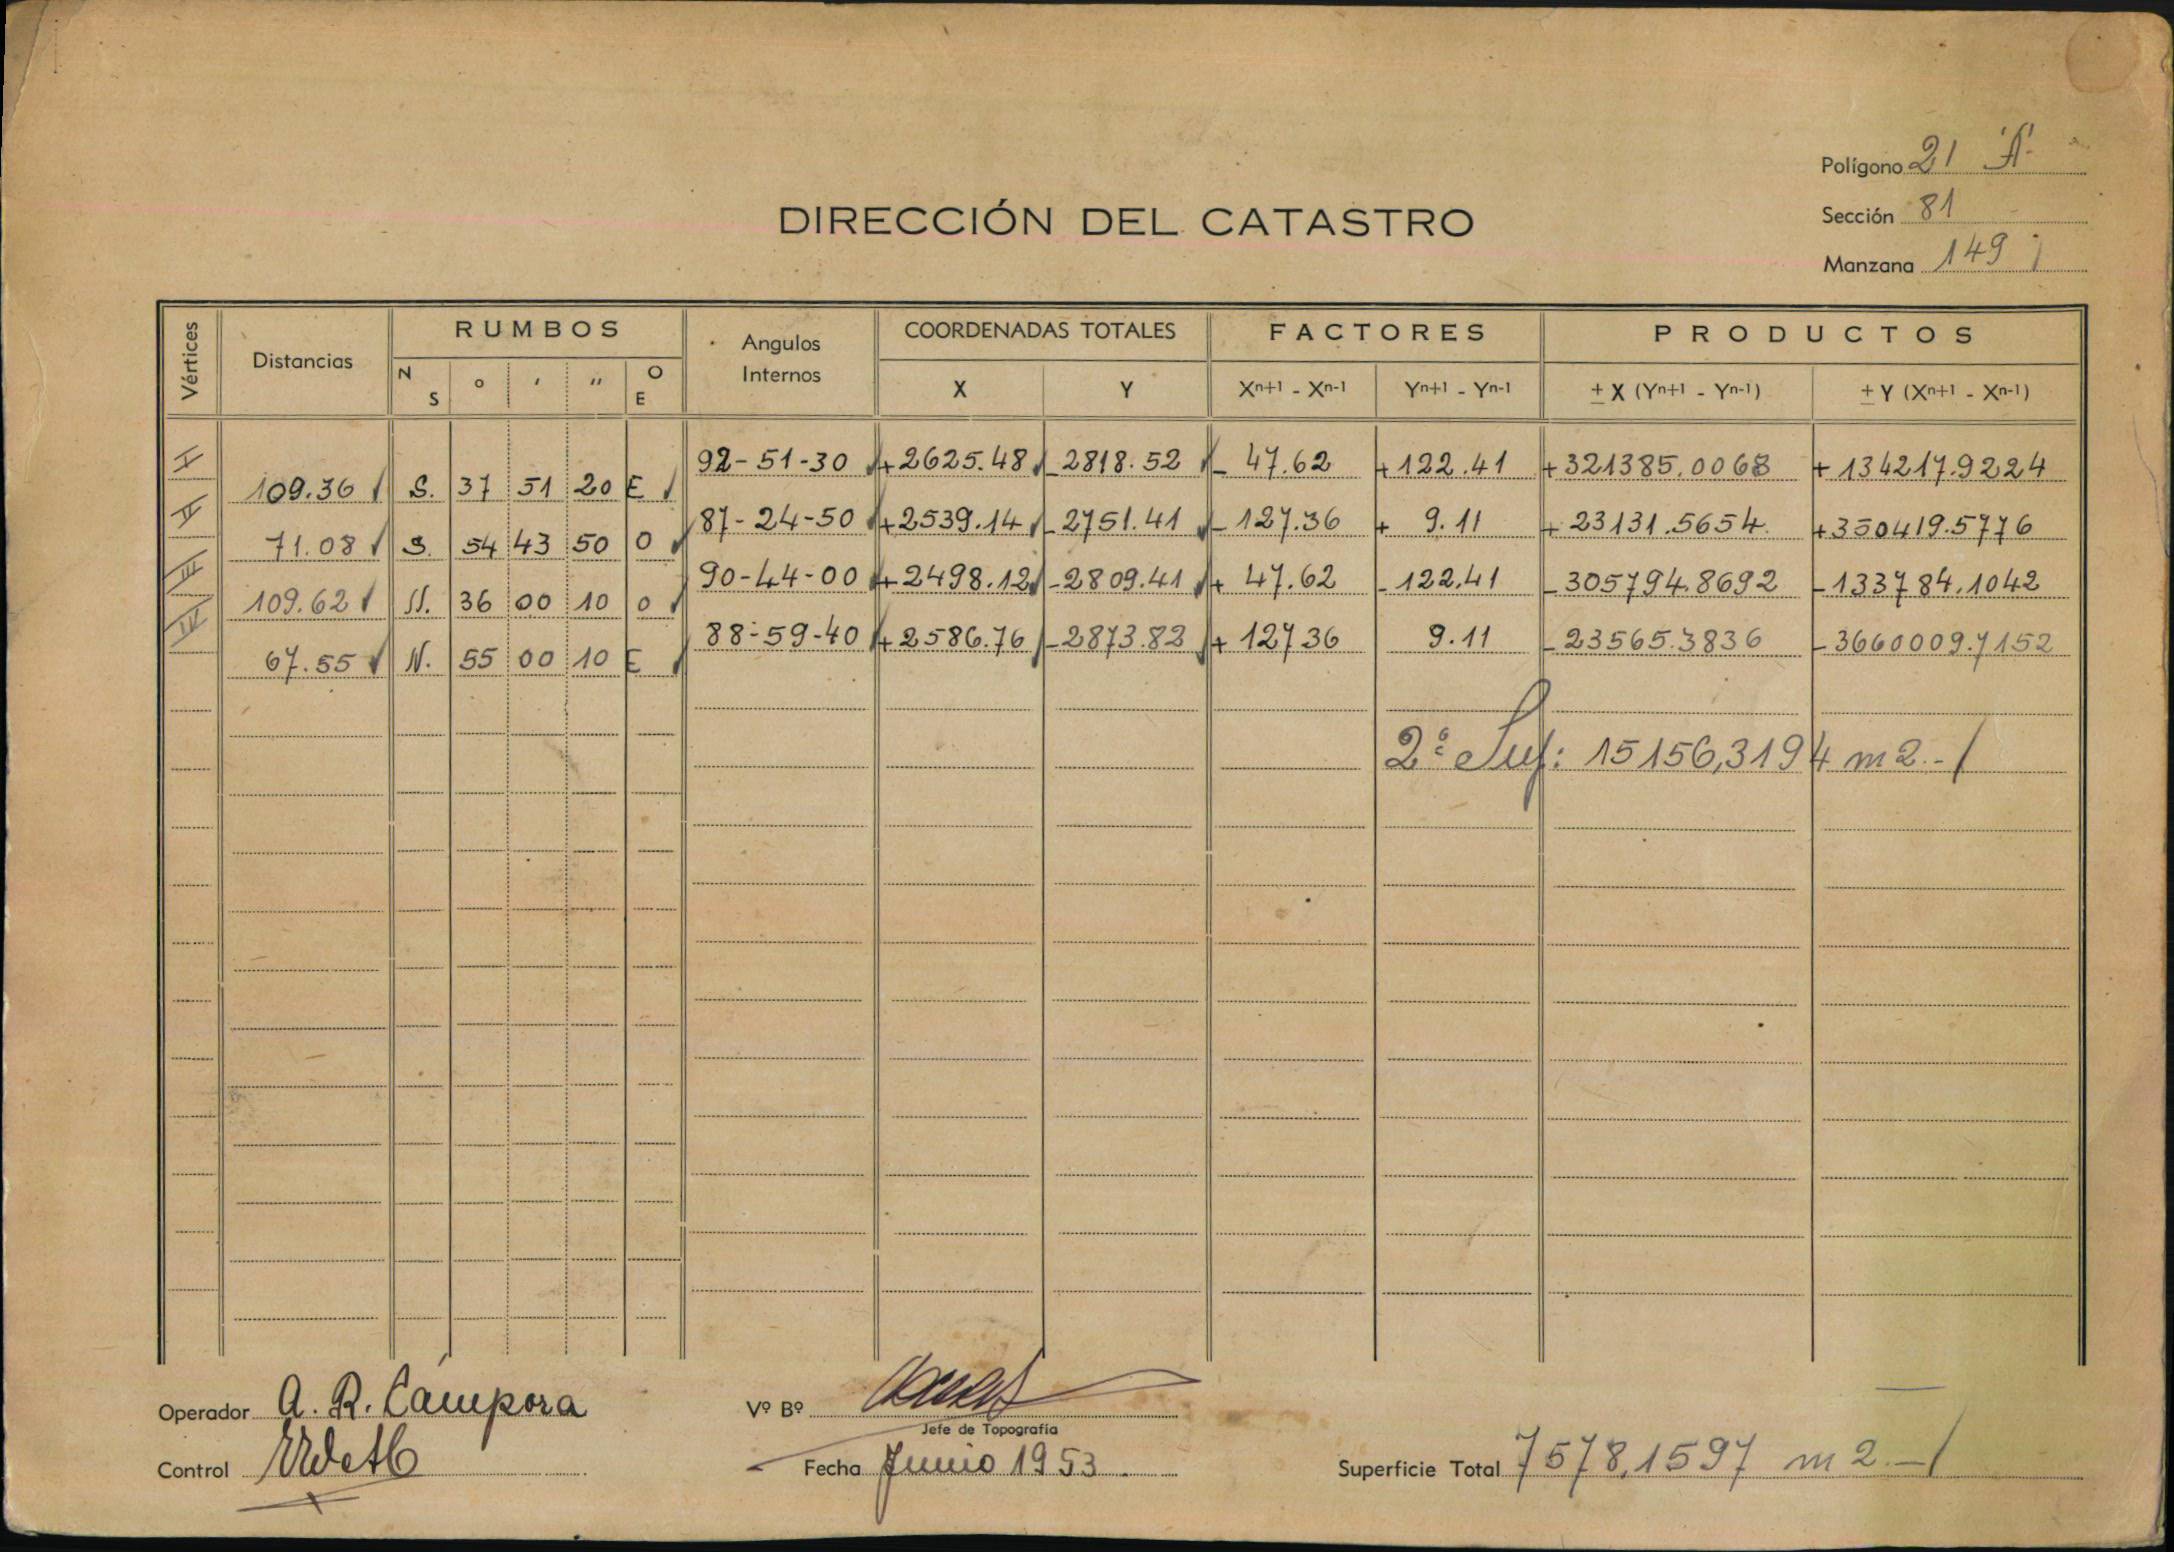 Polígono 21 "A"
Sección 81
Manzana 149
DIRECCIÓN DEL CATASTRO
Vértices Distancias RUMBOS Angulos Internos COORDENADAS TOTALES FACTORES PRODUCTOS
N S o ' '' O E X Y Xn+1 - Xn-1 Yn+1 - Yn-1 ± X (Yn+1 - Yn-1) ± Y (Xn+1 - Xn-1)
I 92-51-30 +2625.48 -2818.52 - 47.62 +122.41 +321385.0068 +134217.9224
109.36 S. 37 51 20 E
II 87-24-50 +2539.14 -2751.41 - 127.36 + 9.11 + 23131.5654 +350419.5776
71.08 S. 54 43 50 O
III 90-44-00 +2498.12 -2809.41 + 47.62 -122.41 -305794.8692 -133784.1042
109.62 N. 36 00 10 O
IV 88-59-40 +2586.76 -2873.82 + 127.36 9.11 -23565.3836 -3660009.7152
67.55 N. 55 00 10 E
2ᵉ Sup: 15156,3194 m2.-
Operador A. R. Cámpora
Vº Bº
Jefe de Topografía
Control
Fecha Junio 1953
Superficie Total 7578,1597 m2.—